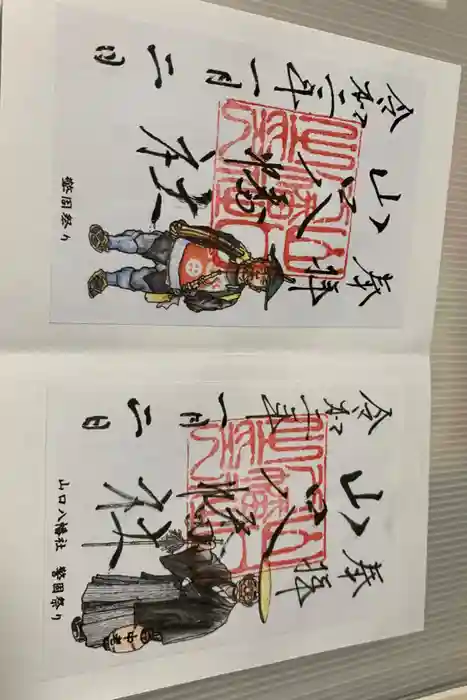 奉拝
山口八幡社
令和二年一月二日
警固祭り
奉拝
山口八幡社
令和二年一月二日
山口八幡社 警固祭り